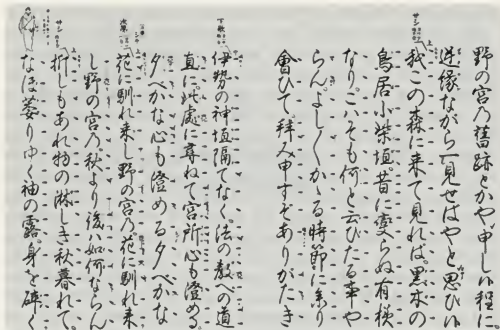 野の宮乃舊跡とかや申し候程に
逆縁ながら一見せばやと思ひ候
サシ 我この森に来て見れば。黒木の
鳥居小柴垣。昔に變らぬ有様
なり。こハそも何と云ひたる事や
らん。よし〳〵かゝる時節に參り
會ひて。拜み申すぞありがたき
下歌 伊勢の神垣隔てなく。法の教への道
直に。此處に尋ねて宮所心も澄める。
夕べかな心も澄める夕べかな
次第 花に馴れ来し野の宮乃。花に馴れ来
し野の宮乃。秋より後ハ如何ならん
サシ 折しもあれ物の淋しき秋暮れて。
なほ萎りゆく袖の露。身を碎く